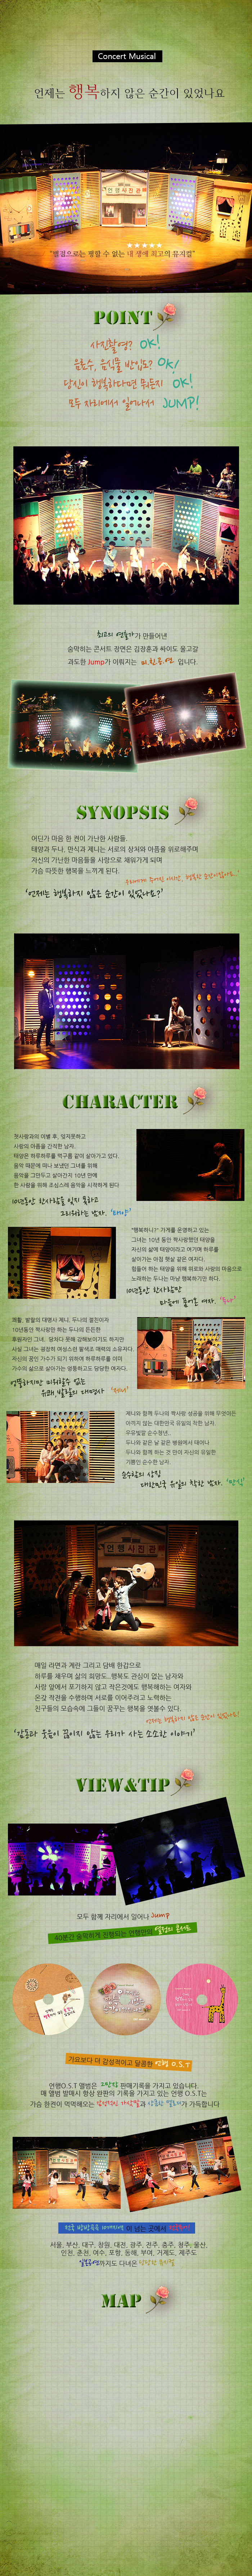 Concert Musical
언제는 행복하지 않은 순간이 있었나요
언행사진관
★★★★★
"별점으로는 평할 수 없는 내 생애 최고의 뮤지컬"
POINT
사진촬영? OK!
음료수, 음식물 반입도? OK!
당신이 행복하다면 뭐든지 OK!
모두 자리에서 일어나서 JUMP!
최고의 연출가가 만들어낸
숨막히는 콘서트 장면은 김장훈과 싸이도 울고갈
과도한 Jump가 이뤄지는 미친공연 입니다.
SYNOPSIS
어딘가 마음 한 켠이 가난한 사람들.
태양과 두나, 만식과 제니는 서로의 상처와 아픔을 위로해주며
자신의 가난한 마음들을 사랑으로 채워가게 되며
가슴 따뜻한 행복을 느끼게 된다.
'언제는 행복하지 않은 순간이 있었나요?'
CHARACTER
첫사랑과의 이별 후, 잊지못하고
사랑의 아픔을 간직한 남자.
태양은 하루하루를 먹구름 같이 살아가고 있다.
음악 때문에 떠나 보냈던 그녀를 위해
음악을 그만두고 살아간지 10년 만에
한 사람을 위해 조심스레 음악을 시작하게 된다
10년동안 한사람을 잊지 못하고
그리워하는 남자. '태양'
"행복하니?" 가게를 운영하고 있는
그녀는 10년 동안 짝사랑했던 태양을
자신의 삶에 태양이라고 여기며 하루를
살아가는 아침 햇살 같은 여자다.
힘들어 하는 태양을 위해 위로와 사랑의 마음으로
노래하는 두나는 마냥 행복하기만 하다.
10년동안 한사람만
가슴에 품어온 여자. '두나'
쾌활, 발랄의 대명사 제니. 두나의 절친이자
10년동안 짝사랑만 하는 두나의 든든한
후원자인 그녀. 당차다 못해 강해보이기도 하지만
사실 그녀는 굉장히 여성스런 팔색조 매력의 소유자다.
자신의 꿈인 가수가 되기 위하여 하루하루를 이미
가수의 삶으로 살아가는 엉뚱하고도 당당한 여자다.
엉뚱하지만 미워할수 없는
유쾌 발랄등의 대명사 '제니'
제니와 함께 두나의 짝사랑 성공을 위해 무엇이든
아끼지 않는 대한민국 유일의 착한 남자.
우유빛깔 순수청년.
두나와 같은 날 같은 병원에서 태어나
두나와 함께 하는 것 만이 자신의 유일한
기쁨인 순수한 남자.
순수함의 상징
대한민국 유일의 착한 남자. '만식'
언행사진관
매일 라면과 계란 그리고 담배 한갑으로
하루를 채우며 삶의 희망도..행복도 관심이 없는 남자와
사랑 앞에서 포기하지 않고 작은것에도 행복해하는 여자와
온갖 작전을 수행하며 서로를 이어주려고 노력하는
친구들의 모습속에 그들이 꿈꾸는 행복을 엿볼수 있다.
언제는 행복하지 않은 순간이 있었나요!
'감동과 웃음이 끊이지 않는 우리가 사는 소소한 이야기'
VIEW&TIP
모두 함께 자리에서 일어나 Jump
40분간 숨막히게 진행되는 언행만의 열정의 콘서트
가요보다 더 감성적이고 달콤한 언행 O.S.T
언행O.S.T 앨범은 2만장 판매기록을 가지고 있습니다.
매 앨범 발매시 항상 완판의 기록을 가지고 있는 언행 O.S.T는
가슴 한켠이 먹먹해오는 감성적인 가사말과 달콤한 멜로디가 가득합니다
서울, 부산, 대구, 창원, 대전, 광주, 전주, 충주, 청주, 울산,
인천, 춘천, 여수, 포항, 동해, 부여, 거제도, 제주도
일본공연까지도 다녀온 당당한 뮤지컬
MAP